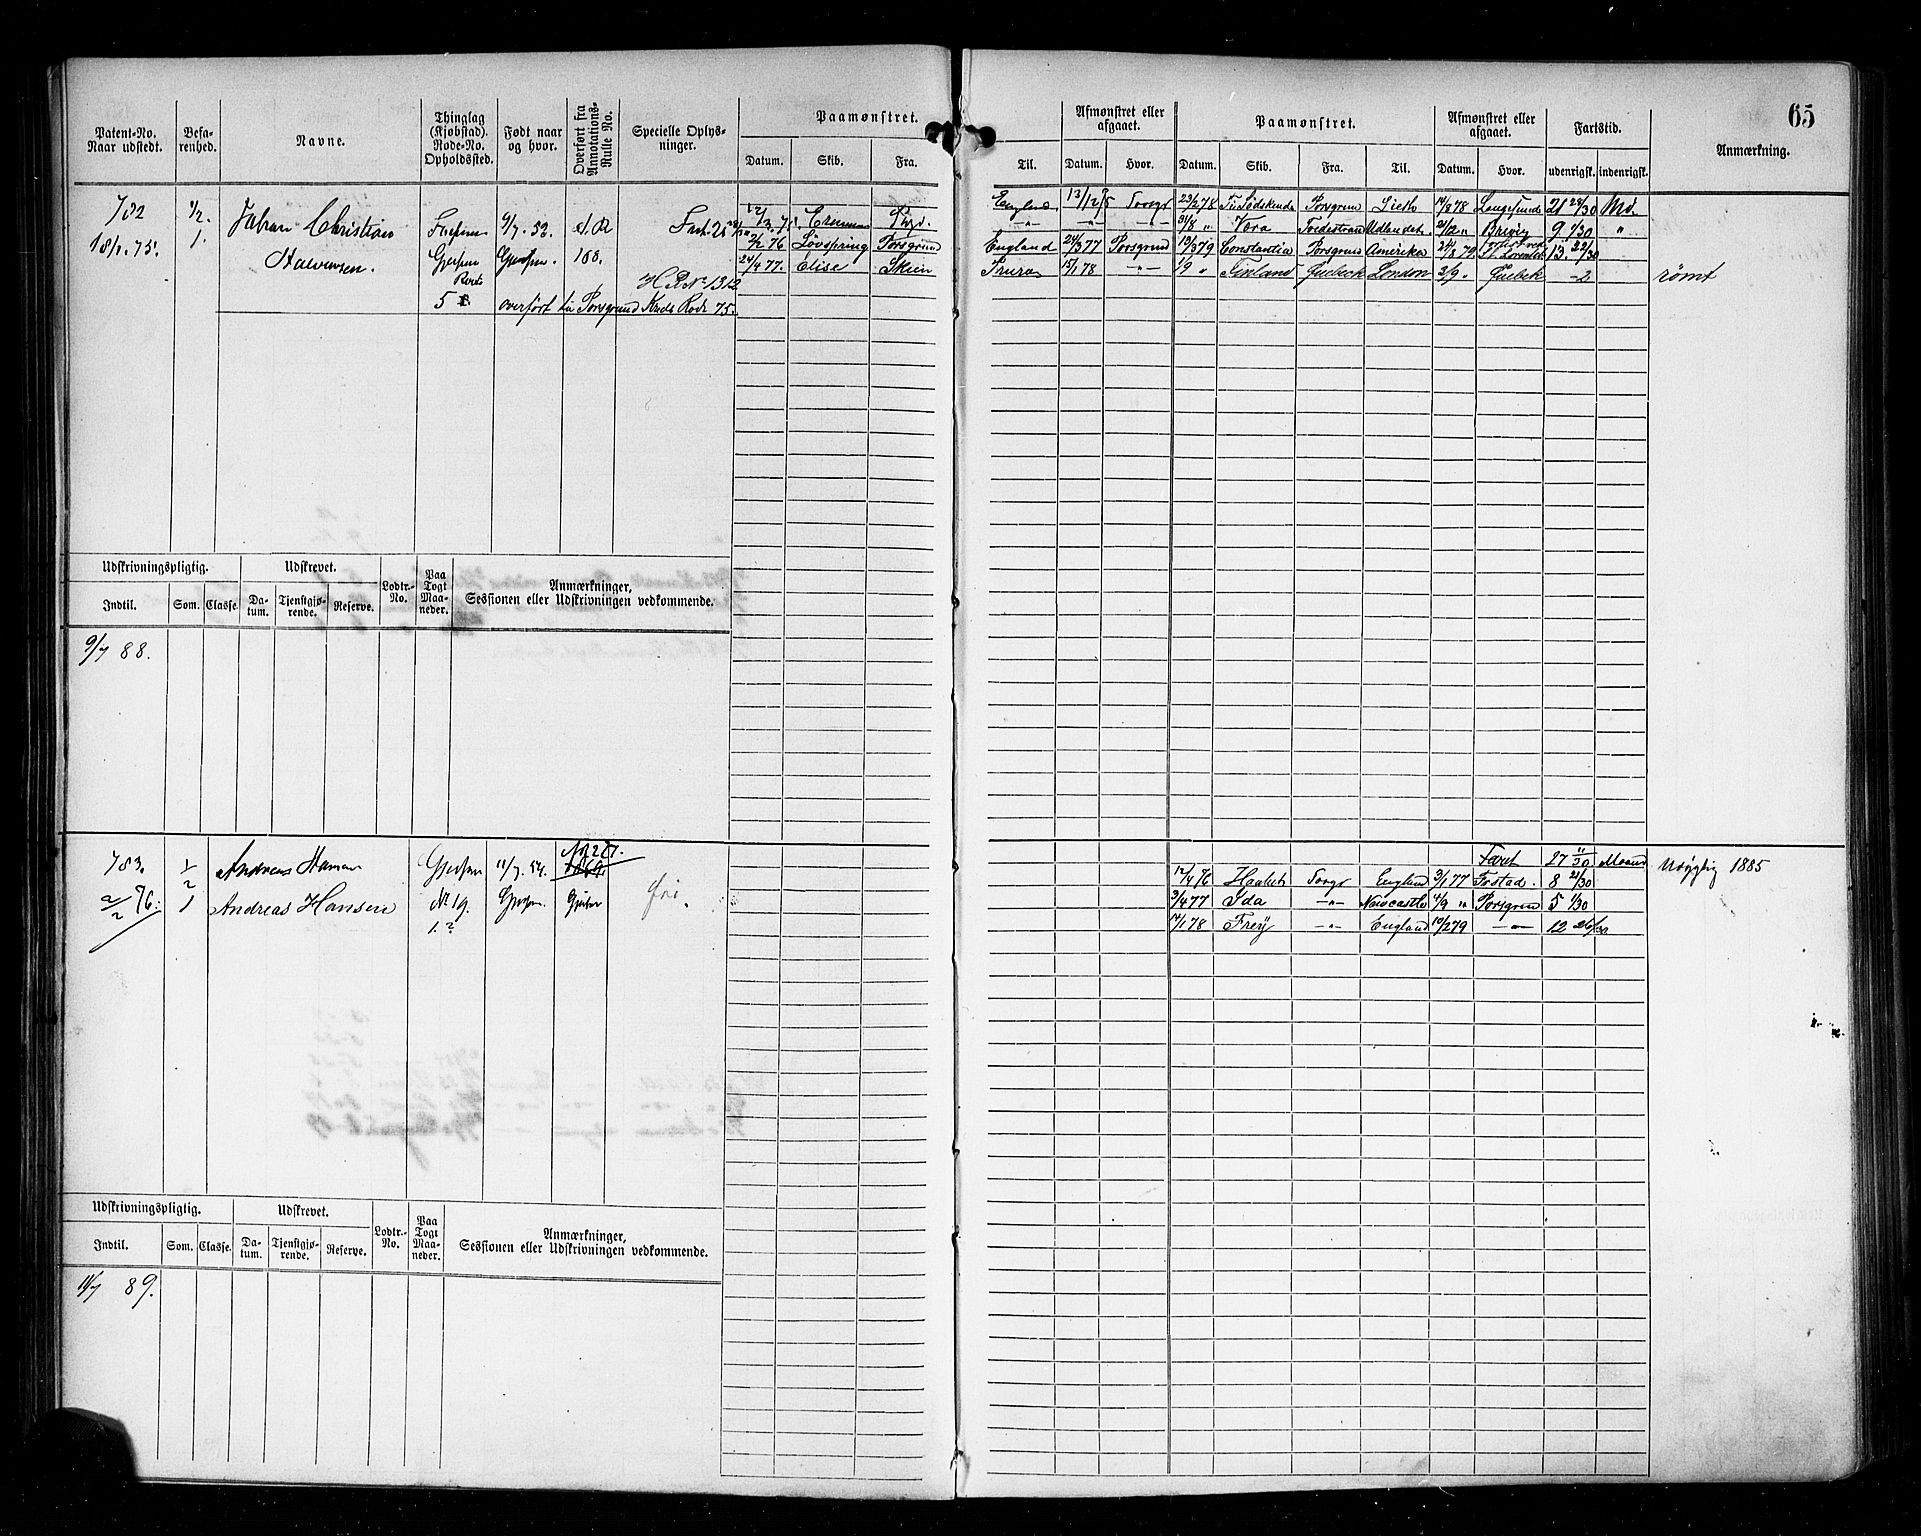 65
Patent-No. Naar udstedt.
Befarenhed.
Navne.
Thinglag (Kjøbstad). Rode-No. Opholdssted.
Født naar og hvor.
Overført fra Annotations-Rulle No.
Specielle Oplysninger.
Paamønstret.
Datum. Skib. Fra.
Til.
Afmønstret eller afgaaet.
Datum. Hvor.
Paamønstret.
Datum. Skib. Fra. Til.
Afmønstret eller afgaaet.
Datum. Hvor.
Fartstid.
udenrigsk. indenrigsk.
Anmærkning.
782
18/1. 75.
1/2.
1.
Christian
Halvorsen.
Gjerpen
Rode
5
9/7. 52.
Gjerpen.
188.
H R No 1312
overført til Porsgrund Rode 75.
2/2 76 Løvspring Porsgrund
24/4 77. Elise Skien
England
" "
England 24/3 77 Porsgrund
Truro 15/1 78 — " —
23/2 78 Porsgrund Lieth 14/8 78 Langesund 21 28/30 Md.
31/8 " Vera Tvedestrand Udlandet 21/12 " Brevig 9 1/30 "
13/3 79 Constantia Porsgrund Amerika 21/8 79 St. Lorentz 13. 22/30
1/9 " Finland Quebeck London 2/9 " Quebek — 2
rømt
Udskrivningspligtig. Udskrevet. Lodtr.-No. Paa Togt Maaneder.
Anmærkninger, Sessionen eller Udskrivningen vedkommende.
Indtil. Som. Classe. Datum. Tjenstgjørende. Reserve.
9/7 88.
783.
2/2 76.
1/2
1
Andreas Hansen
Andreas Hansen
Gjerpen
No 19.
1.?
11/7. 54.
Gjerpen.
No 227.
fri.
Faret 27 11/30 Maaned
12/4 76 England 3/1 77 8 21/30
3/4 77 Ida — " — Newcastle 4/9 " Porsgrund 5 1/30
14/1 78 Freÿ — " — England 10/2 79 — " — 12 26/30
Usøgtig 1885
Udskrivningspligtig. Udskrevet. Lodtr.-No. Paa Togt Maaneder.
Anmærkninger, Sessionen eller Udskrivningen vedkommende.
Indtil. Som. Classe. Datum. Tjenstgjørende. Reserve.
11/7 89.